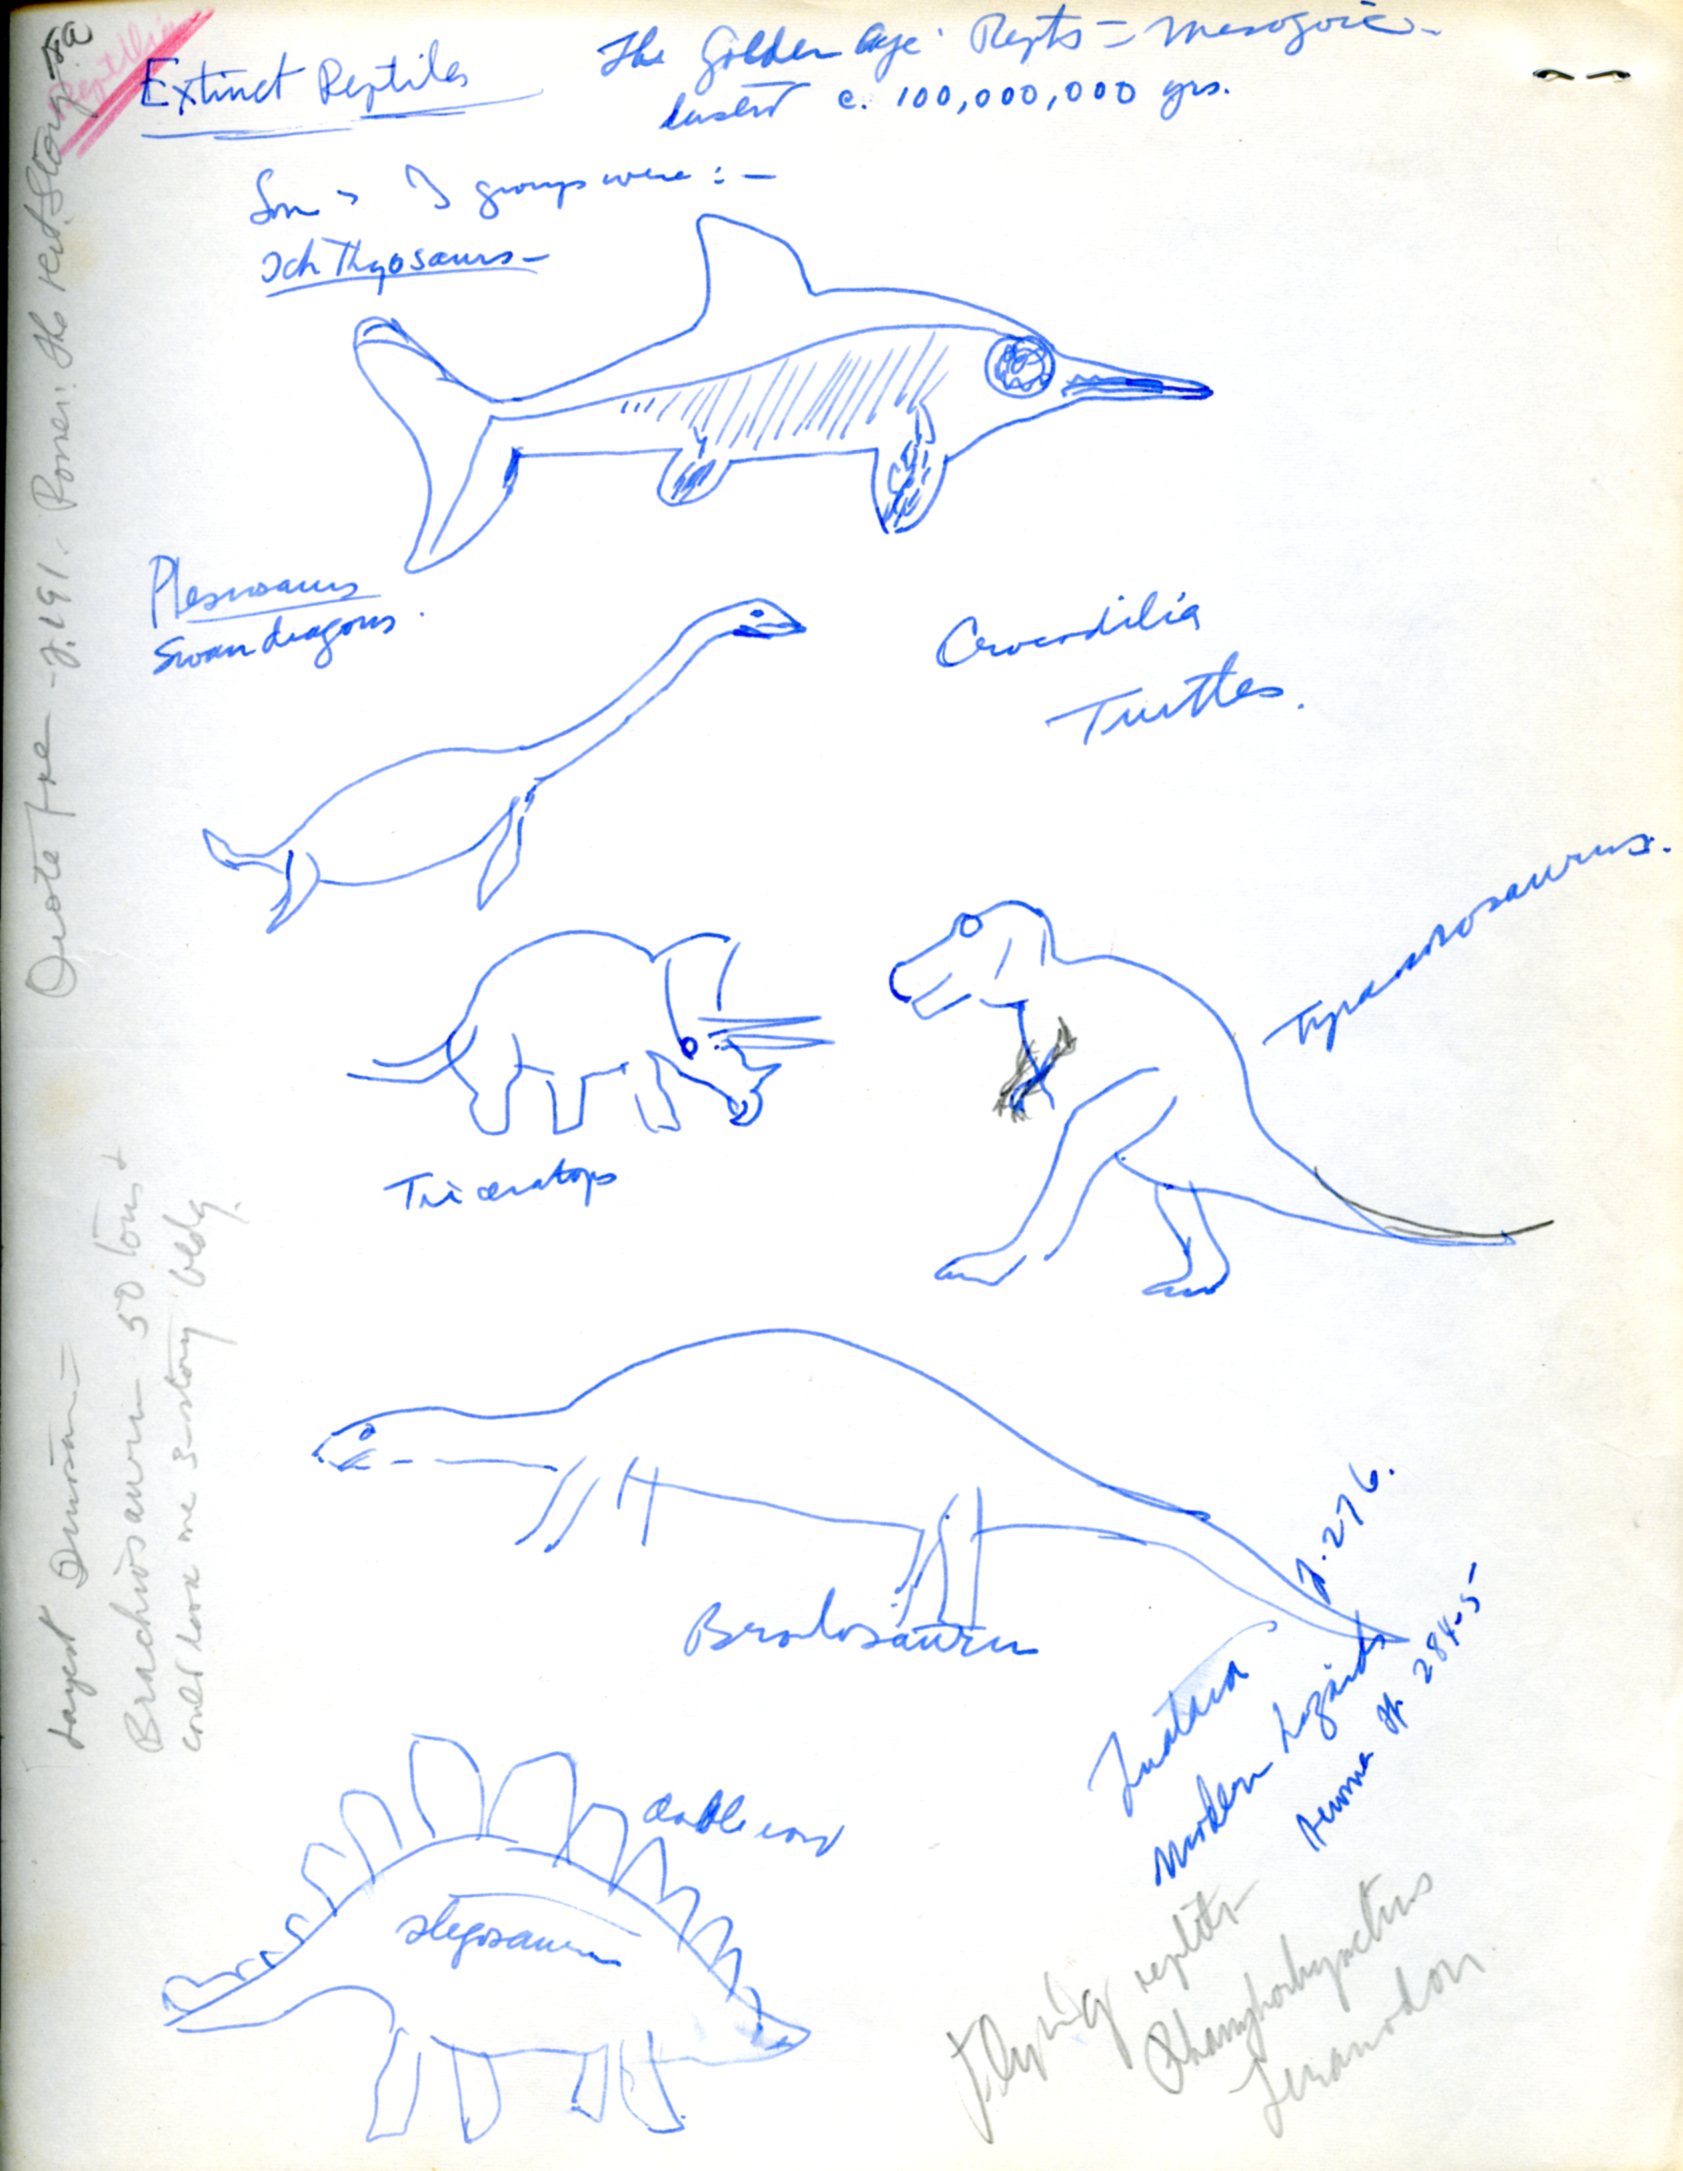 Extinct Reptiles
The Golden Age: Repts = Mesozoic -
lasted c. 100,000,000 yrs.
Some groups were : -
Ichthyosaurs -
Plesiosaurs
Swan dragons.
Crocodilia
Turtles.
Tyrannosaurus.
Triceratops
Brontosaurus
Tuatara p. 276.
Modern Lizards
pp. 284-5
double row
stegosaurus
Flying reptiles
Rhamphorhynchus
Teranodon
Quote from p. 191. Romer: The Vert. Story.
Reptilia
Largest Dinosaur =
Brachiosaurus 50 tons +
could look over 3-story bldg.